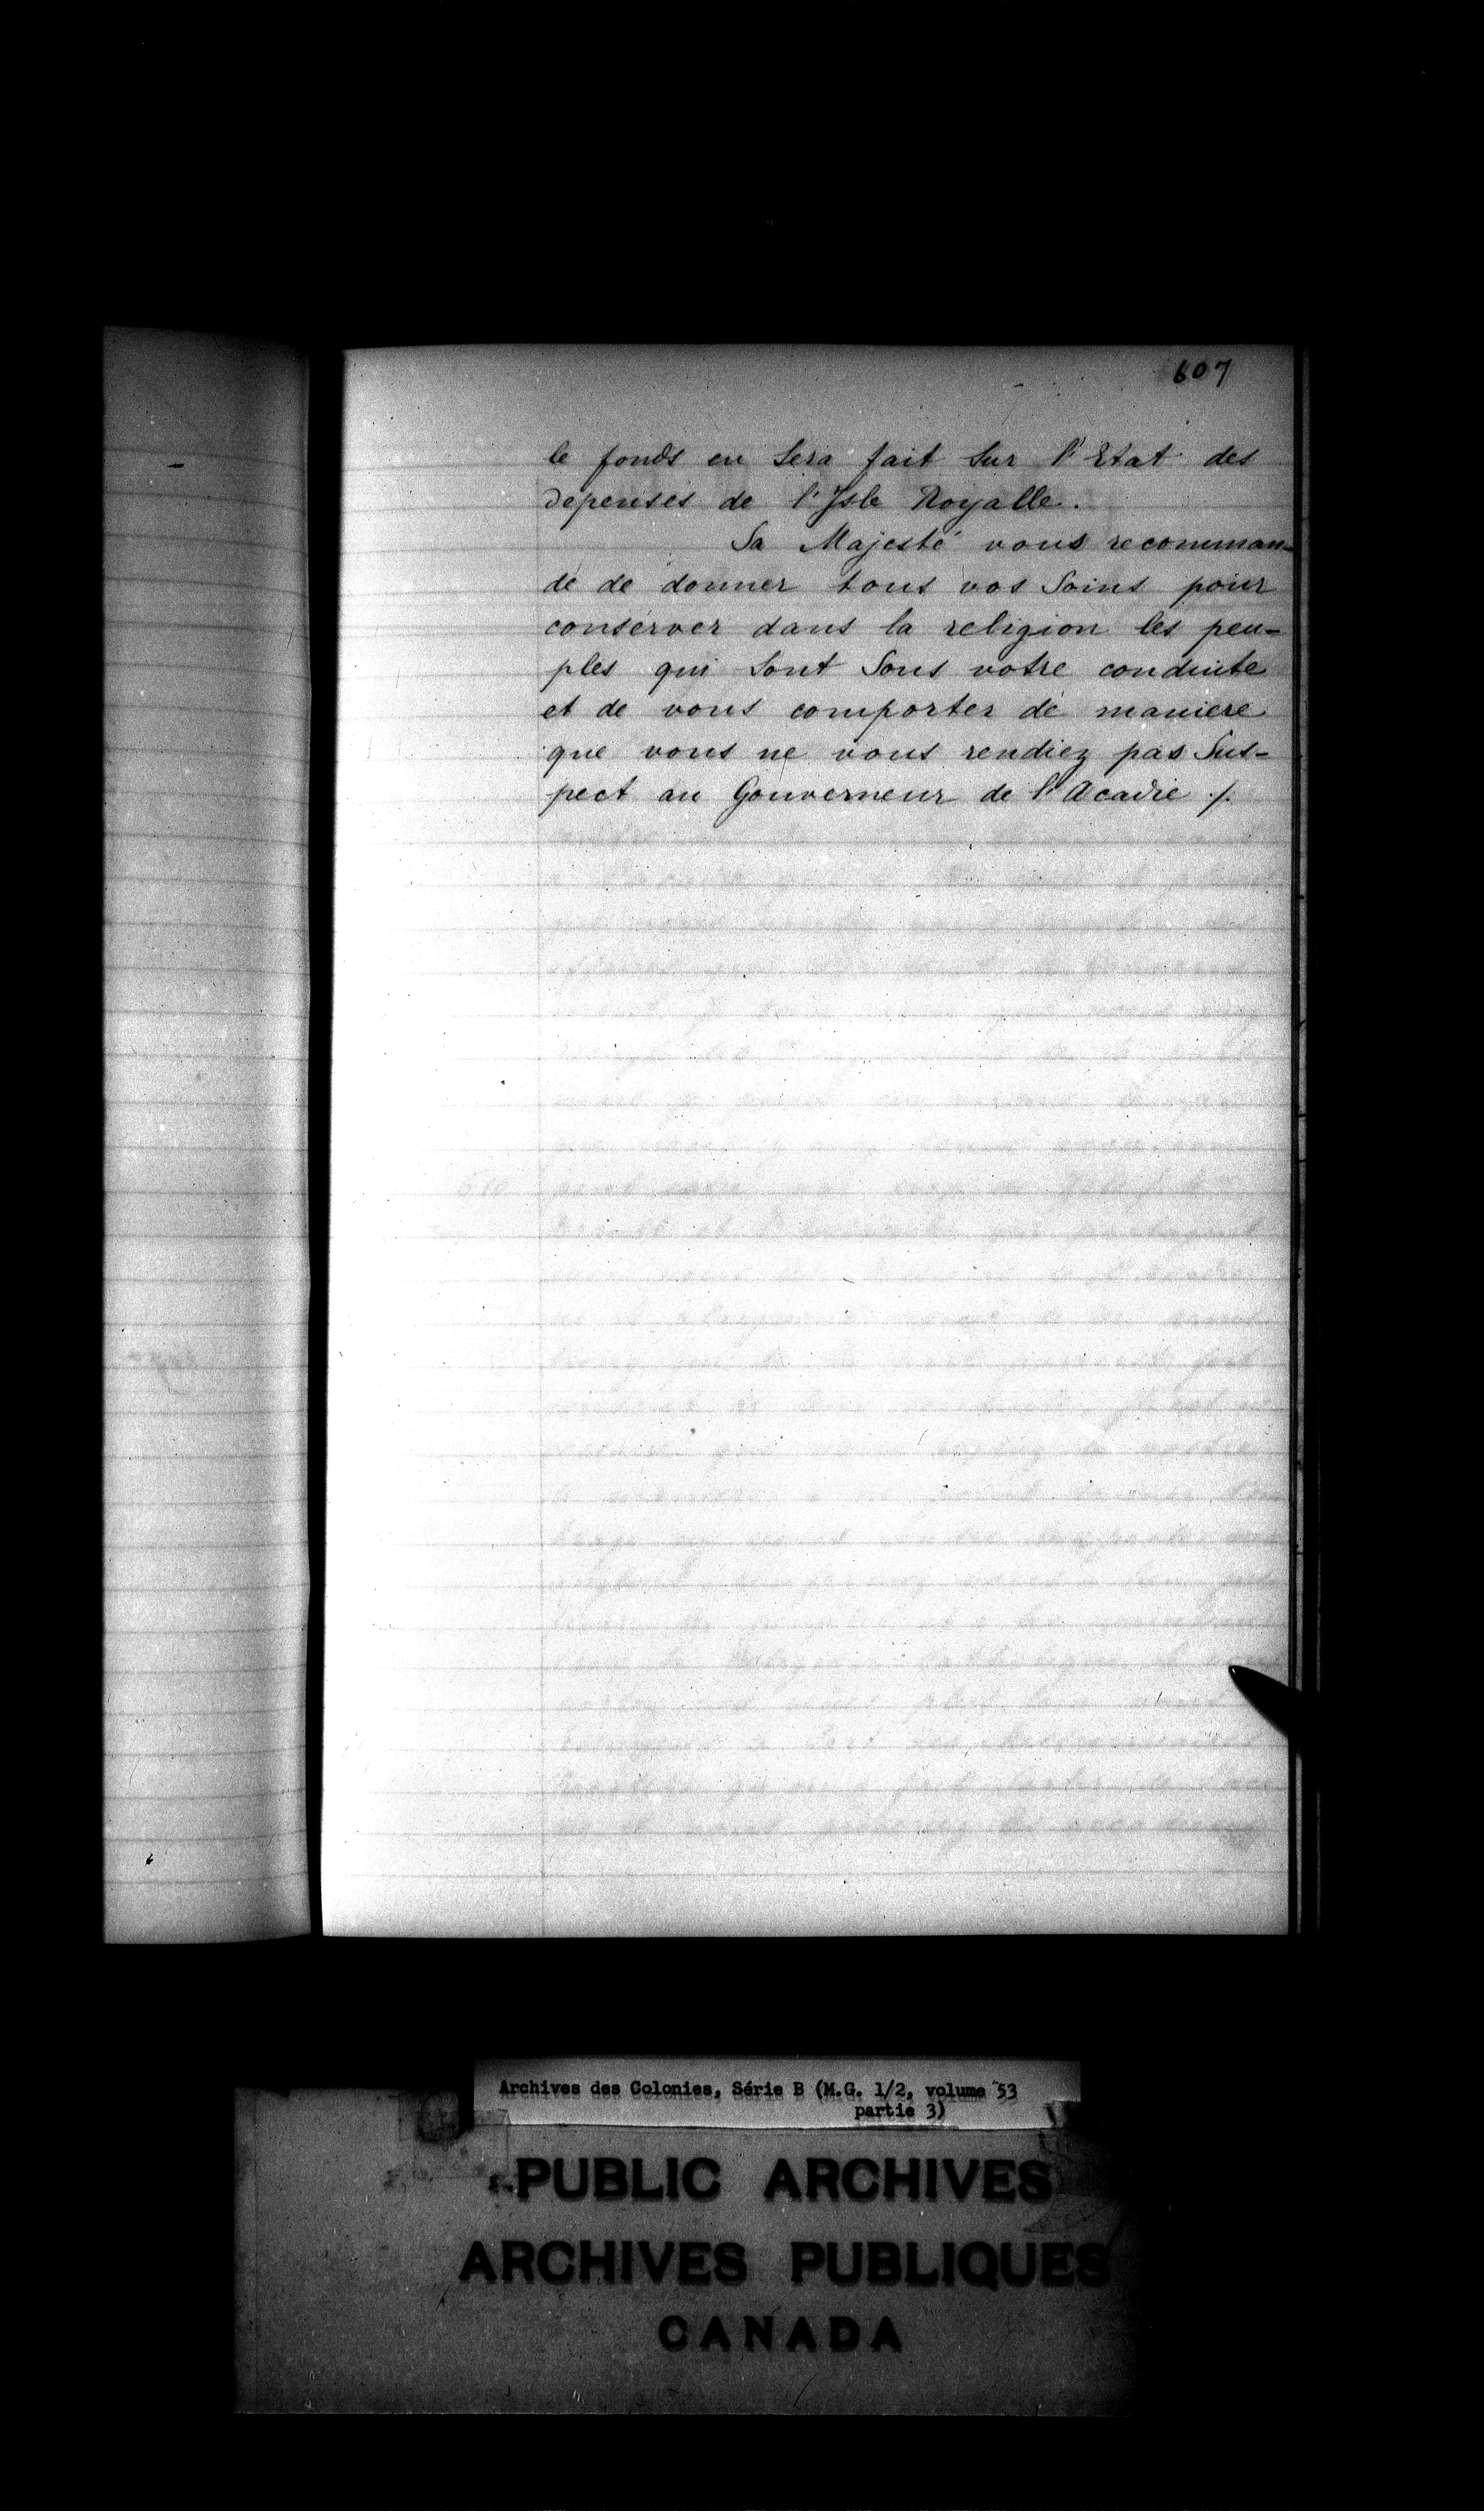 607
le fonds en Sera fait Sur l'Etat des
depenses de l'Isle Royalle.
Sa Majesté vous recomman-
de de donner tous vos Soins pour
conserver dans la religion les peu-
ples qui Sont Sous votre conduite
et de vous comporter de maniere
que vous ne vous rendiez pas Sus-
pect au Gouverneur de l'Acadie ./.
Archives des Colonies, Série B (M.G. 1/2, volume 53
partie 3)
PUBLIC ARCHIVES
ARCHIVES PUBLIQUES
CANADA